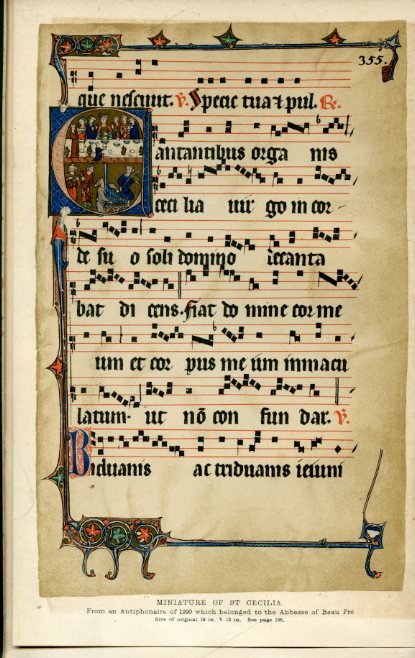 355.
que nesciunt. v. Specie tua ⁊ pul. R.
Cantantibus orga nis
ceci lia uir go in cor
de su o soli domino decanta
bat di cens. fiat do mine cor me
um et cor pus me um inmacu
latum. ut nō con fun dar. v.
Biduanis ac triduanis ieiuni
MINIATURE OF ST CECILIA
From an Antiphonaire of 1290 which belonged to the Abbesse of Beau Pré
Size of original 19 in. X 13 in. See page 136.